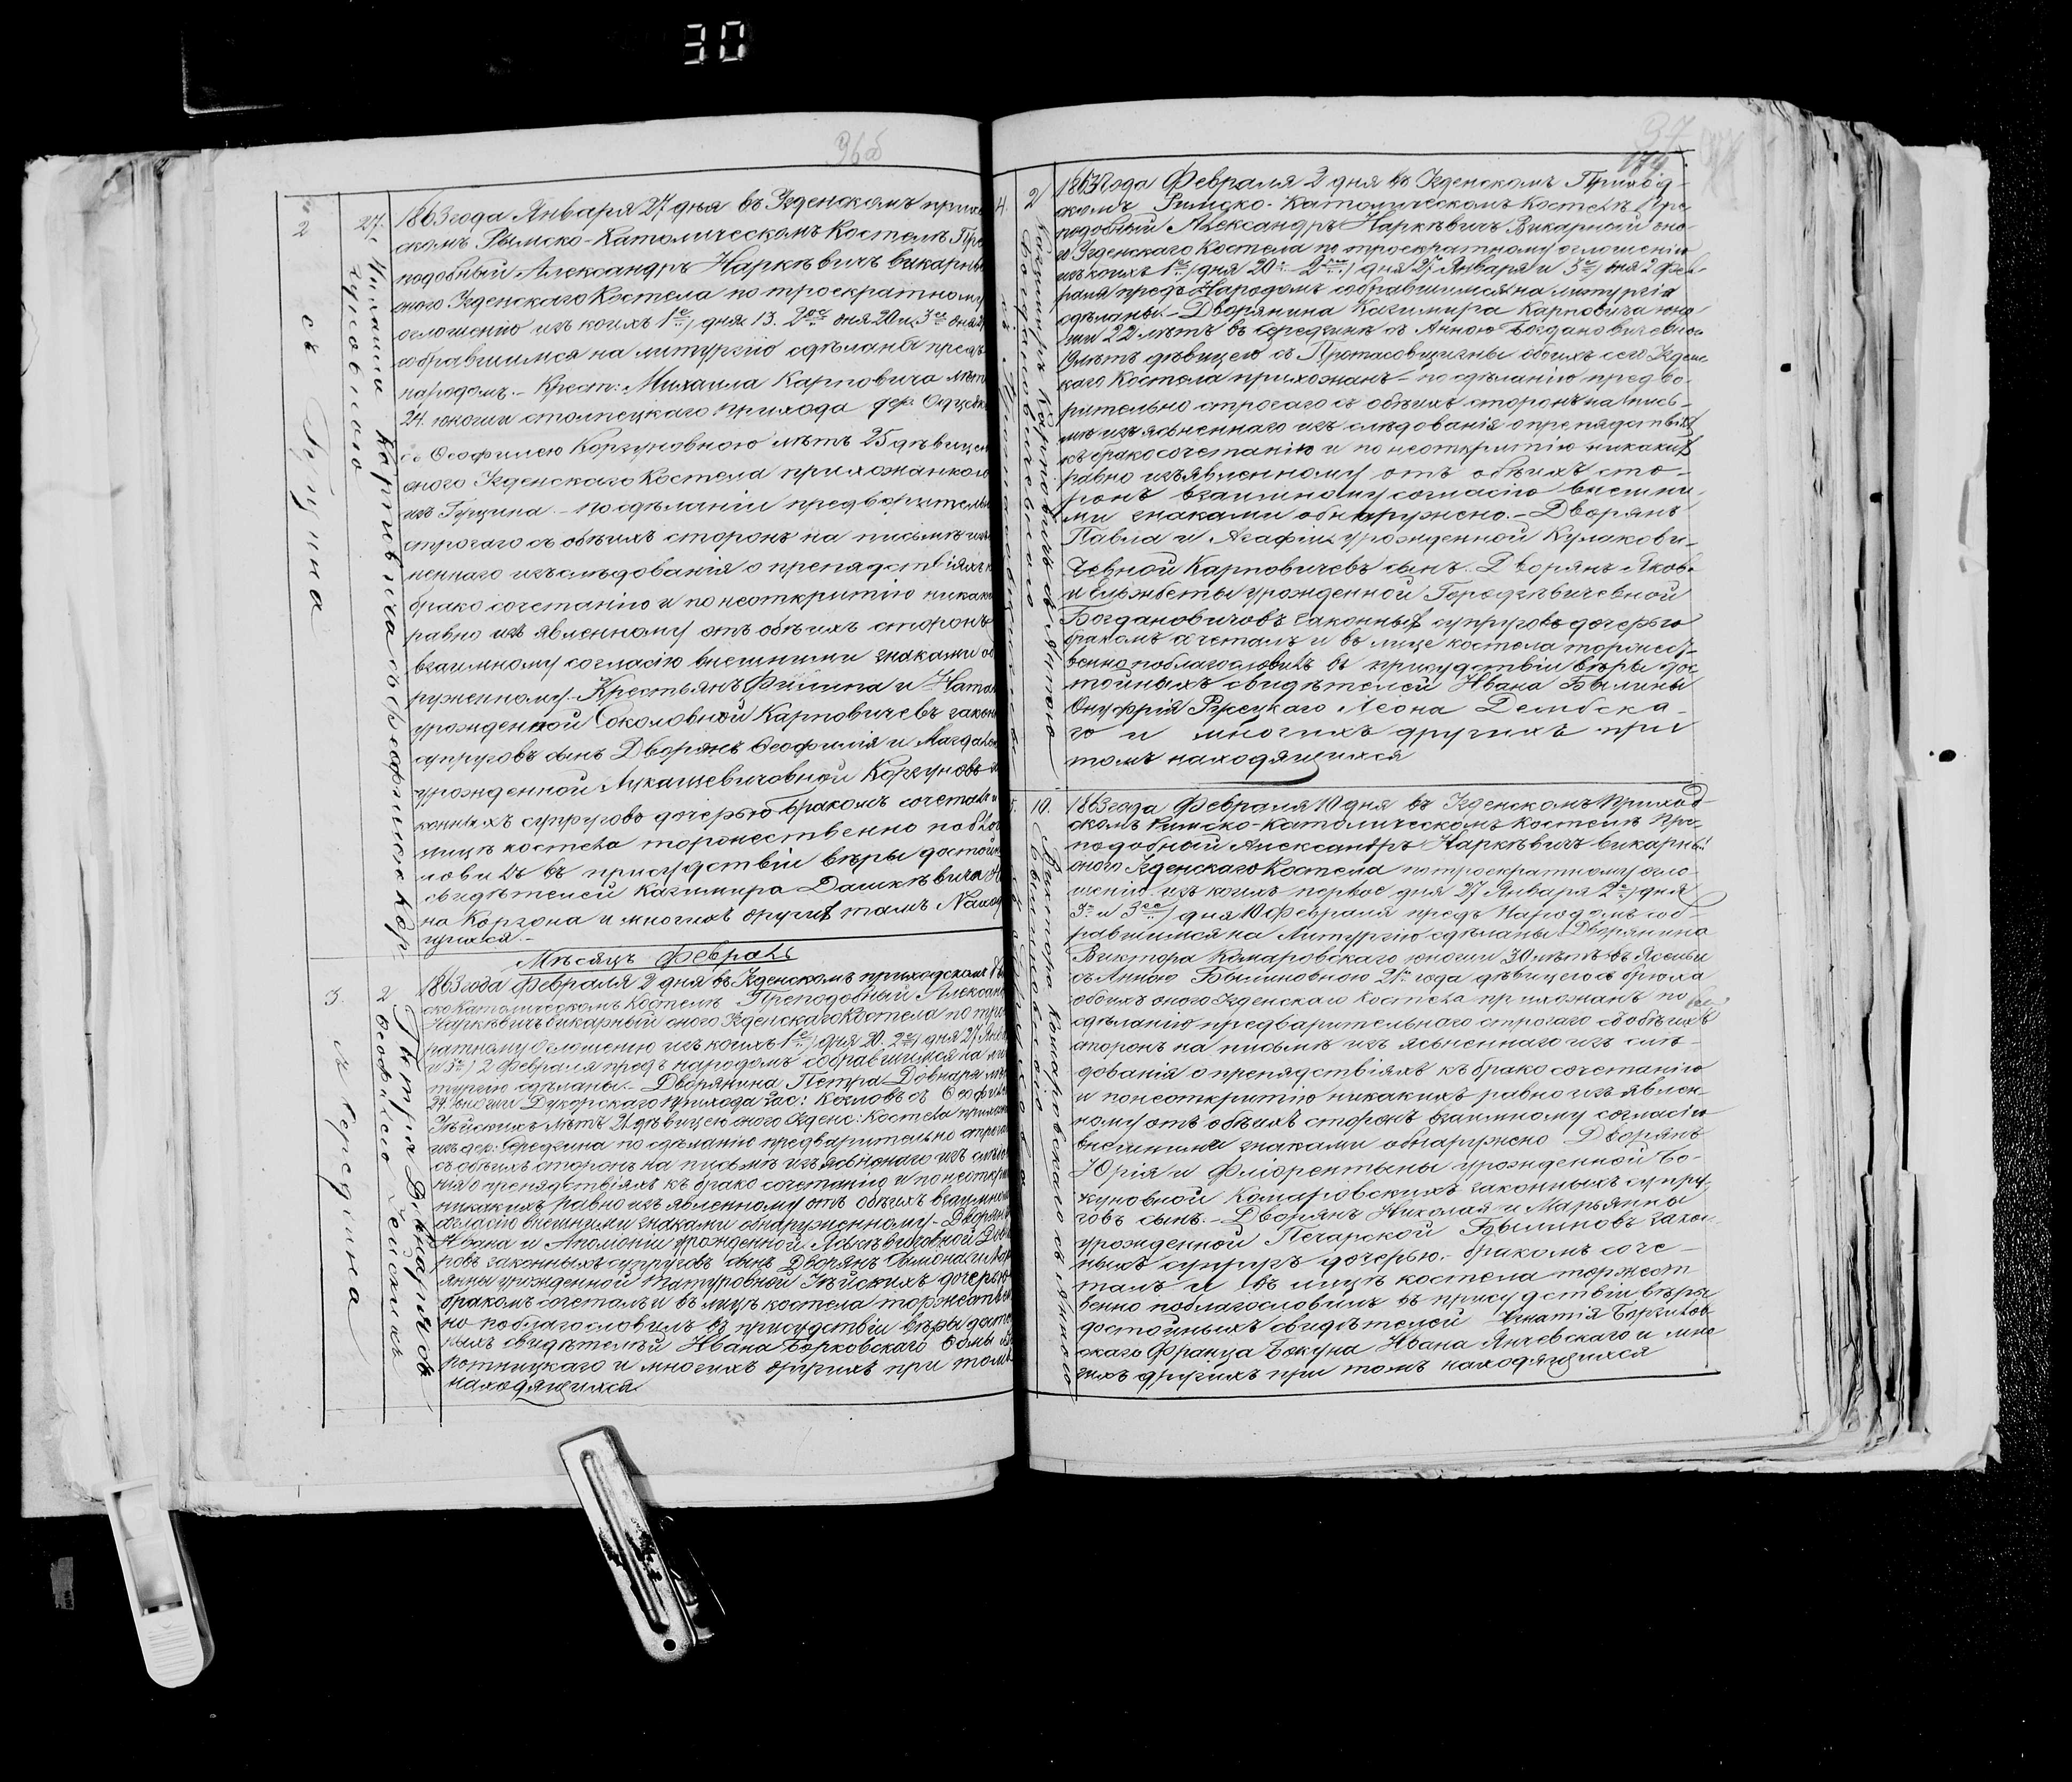 30
36б
2
27.
Михаила Карповича съ Ѳеофилею Кор-
гуновною
съ Гущина
1863 года Января 27 дня въ Узденскомъ прихо
скомъ Рымско-Католическомъ Костелѣ Пре
подобный Александръ Наркѣвичъ викарный
оного Узденскаго Костела по троекратному
оглошенію изъ коихъ 1е дня 13. 2ое дня 20 и 3ее дня
собравшимся на литургію сдѣланы предъ
народомъ.- Крест: Михаила Карповича лѣтъ
24. юноши столпецкаго прихода дер:
съ Ѳеофилею Коргуновною лѣтъ 25 дѣвицею
оного Узденскаго Костела прихожанкою
изъ Гущина.- по сдѣланіи предварительн
строгаго съ обѣихъ сторонъ на письмѣ изъ
неннаго изъслѣдованія о препядствіяхъ к
брако сочетанію и по неоткритію никаки
равно изъ явленному отъ обѣихъ сторонъ
взаимному согласію внешними знаками об
руженному.- Крестьянъ Филипа и Ната
урожденной Соколовной Карповичевъ закон
супруговъ сынъ Дворянъ Ѳеофилія и Магдале
урожденной Лукашевичовной Коргуновъ за
конныхъ супруговъ дочерью бракомъ сочеталъ и
лицѣ костела торжественно поблаго
ловилъ въ присудствіи вѣры достойн
свидѣтелей Казимира Дашкѣвича
на Коргона и многихъ другихъ тамъ Наход
щихся.-
Мѣсяцъ Февраль
3.
2
Петра Довнаричов
съ Ѳеофилею Уейскихъ
съ Середзина
1863 года Февраля 2 дня въ Узденскомъ приходскомъ
ско Католическомъ Костелѣ Преподобный Алексан
Наркѣвичъ викарный оного Узденскаго Костела по тро
ратному оглошенію изъ коихъ 1е дня 20. 2ое дня 27 Янва
и 3ее 2 Февраля предъ народомъ собравшимся на ли
тургію сдѣланы.- Дворянина Петра Довнара лѣтъ
24. юноши Дукорскаго прихода Козловъ съ Ѳеофилею
лѣтъ 21 дѣвицею оного Узденс: Костела прихож
изъ дер: Середзина по сдѣланію предварительно строга
съ обѣихъ сторонъ на письмѣ изъ яснѣнаго изъ слѣдо
нія о препядствіяхъ къ брако сочетанію и по неоткри
никакихъ равно изъ явленному отъ обѣихъ взаимно
согласію внешними знаками обнаруженному.- Дворян
Ивана и Аполоніи урожденной Довна
ровъ законныхъ супруговъ сынъ Дворянъ Сымона и Мар
янны урожденной дочерью
бракомъ сочеталъ и въ лицѣ костела торжествен
но поблагословилъ въ присудствіи вѣры досто
ныхъ свидѣтелѣй Ивана Борковскаго
ротницкаго и многихъ другихъ при томъ
находящихся
37
4.
2
Казимиръ Карповичъ съ Анною
Богдановичевною
съ Протасовщизны
1863 года Февраля 2 дня въ Узденскомъ Приход-
скомъ Римско-Католическомъ Костелѣ Пре
подобный Александръ Наркѣвичъ Викарный оно-
го Узденскаго Костела по троекратному оглошенію
изъ коихъ 1е дня 20. 2ое дня 27 Января и 3е дня 2 Фев-
раля предъ Народомъ собравшимся на литургію
сдѣланы.- Дворянина Казимира Карповича юно-
ши 22 лѣтъ въ Середзинѣ съ Анною Богдановичевною
19 лѣтъ дѣвицею съ Протасовщизны обоихъ сего Узден
скаго Костела прихожанъ - по сдѣланію предва-
рительно строгаго съ обѣихъ сторонъ на пись-
мѣ изъ ясненнаго изъ слѣдованія о препядствіяхъ
къ брако сочетанію и по неоткритію никакихъ
равно изъявленному отъ обѣихъ сто-
ронъ взаимному согласію внешни-
ми знаками обнаружено.- Дворянъ
Павла и Агафіи урожденной Кулакови-
чевной Карповичевъ сынъ. Дворянъ Якова
и Елъжбеты урожденной Городзѣвичевной
Богдановичовъ законныхъ супруговъ дочерью
бракомъ сочеталъ и въ лице костела торжест-
венно поблагословилъ въ присудствіи вѣры дос
тойныхъ свидѣтелей Ивана Былины
Онуфрія Леона Дембска-
го и многихъ другихъ при
томъ находящихся
5.
10.
Виктора Комаровскаго съ Анною
Былиновною
1863 года Февраля 10 дня въ Узденскомъ Приход-
скомъ Римско-Католическомъ Костелѣ Пре-
подобный Александръ Наркѣвичъ викарный
оного Узденскаго Костела по троекратному огло-
шенію изъ коихъ первое дня 27 Января 2ое дня
3 и 3ее дня 10 Февраля предъ Народомъ соб-
равшимся на Литургію сдѣланы Дворянина
Виктора Комаровскаго юноши 30 лѣтъ
съ Анною Былиновною 21 года дѣвицею съ Брюха
обоихъ оного Узденскаго Костела прихожанъ по
сдѣланію предварительнаго строгаго съ обѣихъ
сторонъ на письмѣ изъ ясьненнаго изъ слѣ-
дованія о препядствіяхъ къ брако сочетанію
и по неоткритію никакихъ равно изъ явлен-
ному отъ обѣихъ сторонъ взаимному согласію
внешними знаками обнаружено Дворянъ
Юрія и Флорентыны урожденной Бо-
куновной Комаровскихъ законныхъ супру-
говъ сынъ.- Дворянъ Николая и Марьянны
урожденной Печарской Былиновъ закон
ныхъ супругъ дочерью.- бракомъ соче-
талъ и въ лицѣ костела торжест
венно поблагословилъ въ присудствіи вѣры
достойныхъ свидѣтелей Игнатія
скаго Франца Бокуна Ивана Янчевскаго и мно
гихъ другихъ при томъ находящихся